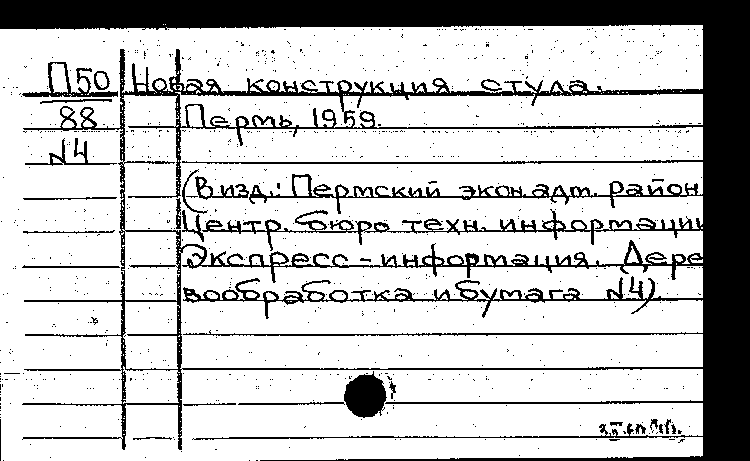 П50 Новая конструкция стула.
88 Пермь, 1959.
N4
(В изд.: Пермский экон. адм. район
Центр. бюро техн. информации
Экспресс - информация. Дере
вообработка и бумага N4).